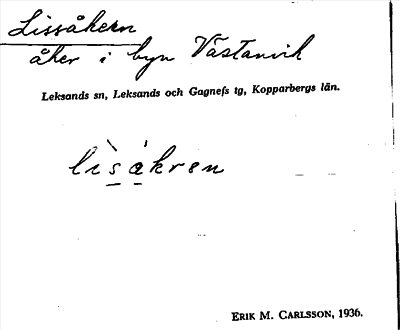 Lissåkern
åker i byn Västanvik
Leksands sn, Leksands och Gagnefs tg, Kopparbergs län.
lìsákren
ERIK M. CARLSSON, 1936.